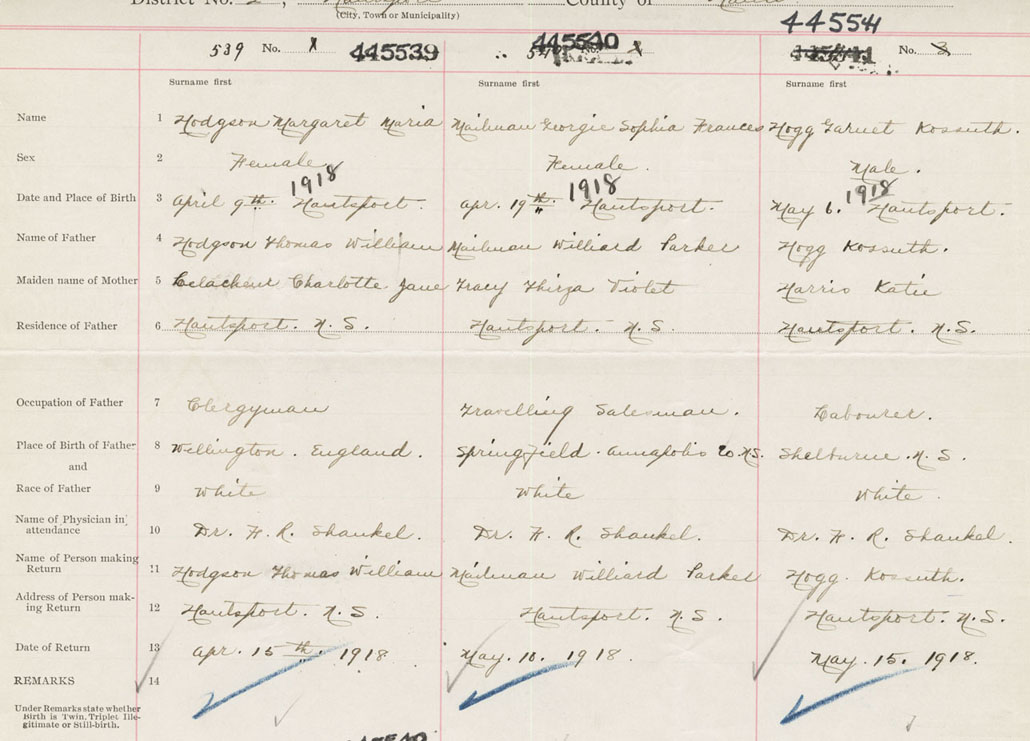 District No. 2, Hantsport County of Hants
(City, Town or Municipality)
445541
539 No. 1 445539 540 445540 No. 445541 No. 3
Surname first Surname first Surname first
Name 1 Hodgson Margaret Maria Mailman Georgie Sophia Frances Hogg Garnet Kossuth.
Sex 2 Female Female. Male.
1918 1918 1918
Date and Place of Birth 3 April 9th. Hantsport. Apr. 19th. Hantsport. May 6. Hantsport.
Name of Father 4 Hodgson Thomas William Mailman Williard Parker Hogg Kossuth.
Maiden name of Mother 5 Charlotte Jane Tracy Thirza Violet Harris Katie
Residence of Father 6 Hantsport. N.S. Hantsport. N.S. Hantsport. N.S.
Occupation of Father 7 Clergyman Travelling Salesman. Labourer.
Place of Birth of Father 8 Wellington. England. Springfield. Annapolis Co. N.S. Shelburne. N.S.
and
Race of Father 9 White White White.
Name of Physician in
attendance 10 Dr. F. R. Shankel. Dr. F. R. Shankel. Dr. F. R. Shankel.
Name of Person making
Return 11 Hodgson Thomas William Mailman Williard Parker Hogg. Kossuth.
Address of Person mak-
ing Return 12 Hantsport. N.S. Hantsport. N.S. Hantsport. N.S.
Date of Return 13 Apr. 15th. 1918 May. 10. 1918. May. 15. 1918.
REMARKS 14
Under Remarks state whether
Birth is Twin, Triplet Ille-
gitimate or Still-birth.